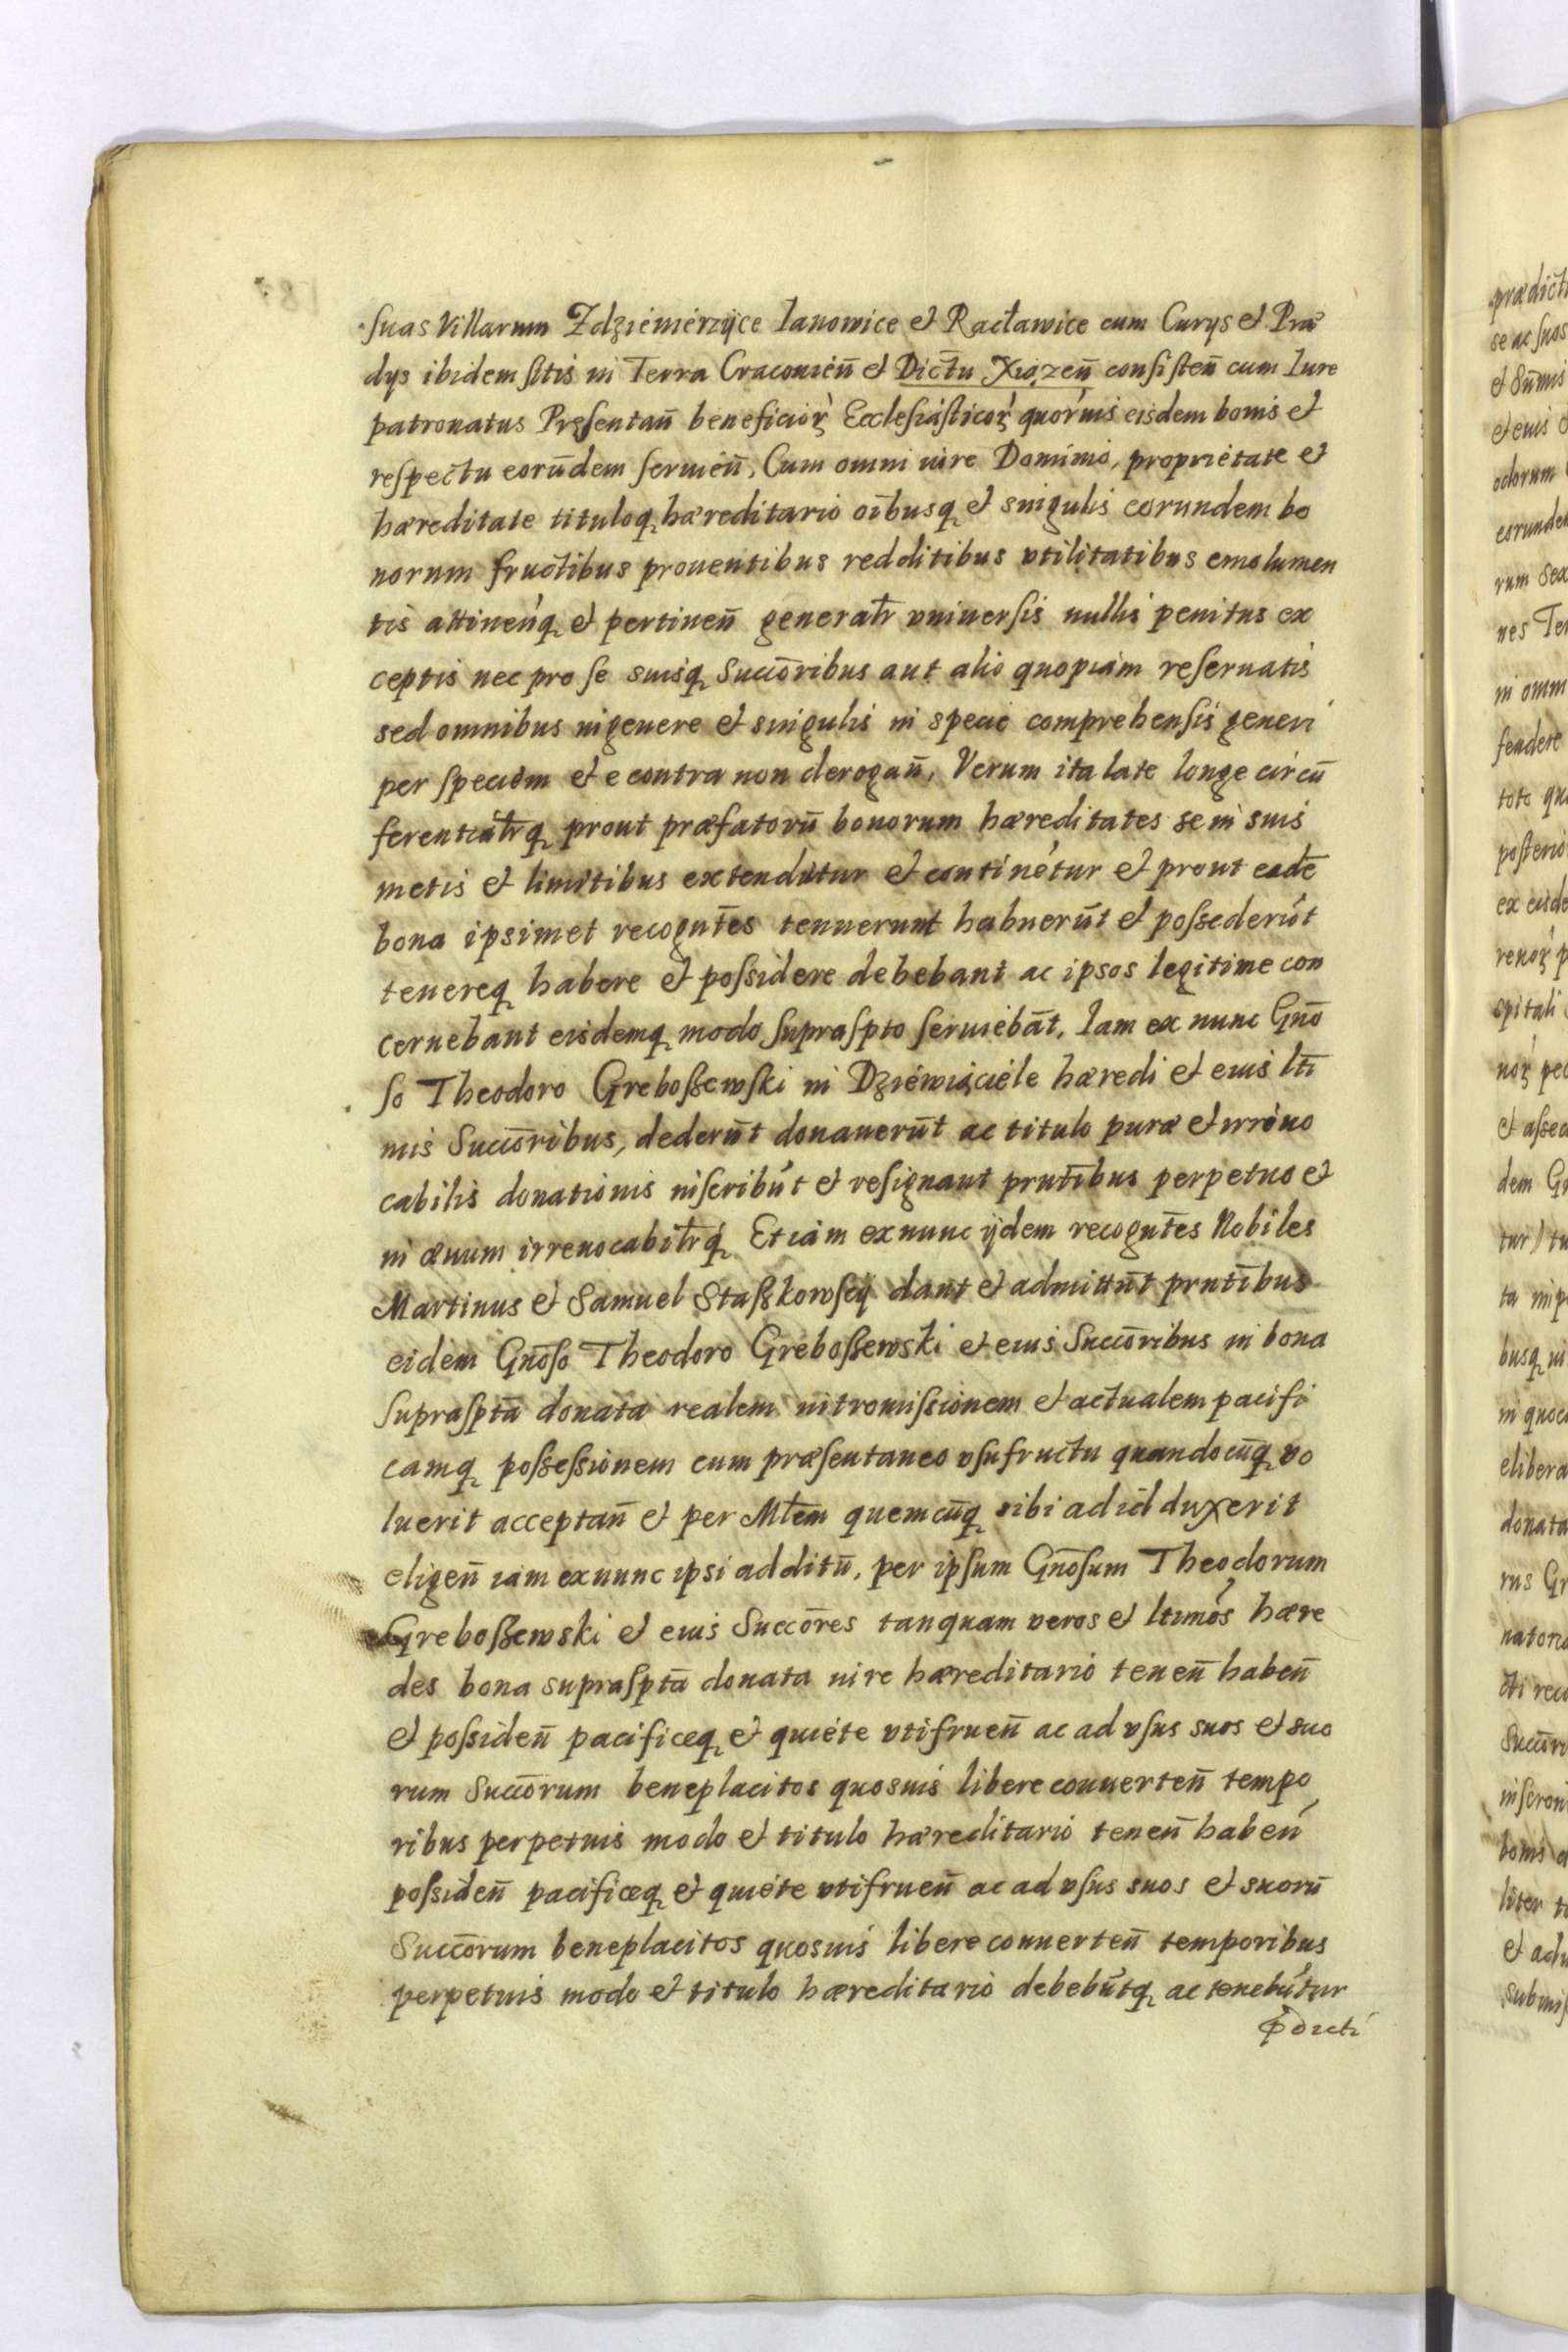 suas Villarum Zdziemierzÿce Ianowice et Racławice cum Curÿs et Præ
dÿs ibidem sitis in Terra Cracouień et Dictu Xiązeñ consisteñ cum Iure
patronatus Pręsentañ beneficioꝝ Ecclesiasticoꝝ quorũuis eisdem bonis et
respectu eorũdem seruieñ, Cum omni iure Dominio, proprietate et
hæreditate tituloq hæreditario oĩbusq et singulis eorundem bo
norum fructibus prouentibus redditibus vtilitatibus emolumen
tis attineñq et pertineñ generalr vniuersis nullis penitus ex
ceptis nec pro se suisq Succõribus aut alio quopiam reseruatis
sed omnibus in genere et singulis in specie comprehensis generi
per speciem et e contra non derogañ, Verum ita late longe circũ
ferentialrq prout præfatorũ bonorum hæreditates se in suis
metis et limitibus extendũtur et continẽtur et prout eadẽ
bona ipsimet recogntẽs tenuerunt habuerũt et possederũt
tenereq habere et possidere debebant ac ipsos legitime con
cernebant eisdemq modo suprasptõ seruiebãt, Iam ex nunc Gnõ
so Theodoro Greboszewski in Dziewiąciele hæredi et eius ltĩ
mis Succõribus, dederũt donauerũt ac titulo puræ et irreuo
cabilis donationis inscribũt et resignant prntĩbus perpetuo et
in æuum irreuocabilrq Et iam ex nunc ÿdem recogntẽs Nobiles
Martinus et Samuel Staszkowscÿ dant et admittũt prntĩbus
eidem Gnõso Theodoro Greboszewski et eius Succõribus in bona
suprasptã donata realem intromissionem et actualem pacifi
camq possessionem cum præsentaneo vsufructu quandocũq vo
luerit acceptañ et per Mltem quemcũq sibi ad id duxerit
eligeñ iam ex nunc ipsi additũ, per ipsum Gnõsum Theodorum
Greboszewski et eius Succõres tanquam veros et ltimõs hære
des bona suprasptã donata iure hæreditario teneñ habeñ
et possideñ pacificeq et quiete vtifrueñ ac ad vsus suos et suo
rum Succõrum beneplacitos quosuis libere conuerteñ tempo
ribus perpetuis modo et titulo hæreditario teneñ habeñ
possideñ pacificeq et quiete vtifrueñ ac ad vsus suos et suorũ
Succõrum beneplacitos quosuis libere conuerteñ temporibus
perpetuis modo et titulo hæreditario debebũtq ac tenebũtur
p̃dicti